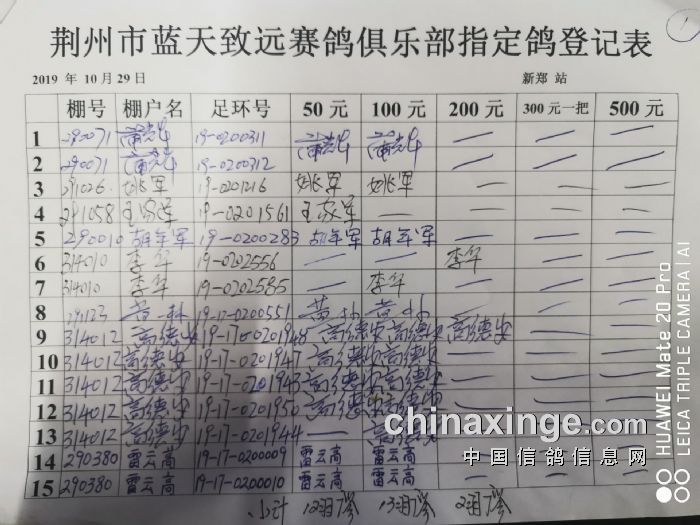 荆州市蓝天致远赛鸽俱乐部指定鸽登记表
2019 年 10 月 29 日 新郑 站
棚号 棚户名 足环号 50 元 100 元 200 元 300 元一把 500 元
1 290071 19-0200311 — — —
2 290071 19-0200312 — — —
3 291026 姚军 19-0201216 姚军 姚军 — — —
4 291058 19-0201561 — — — —
5 290010 胡年军 19-0200283 胡年军 胡年军 — — —
6 314010 李华 19-0202556 — — 李华 — —
7 314010 李华 19-0202585 — 李华 — — —
8 19-17-0200551 — — —
9 314012 高德安 19-17-0201948 高德安 高德安 高德安 — —
10 314012 高德安 19-17-0201947 高德安 高德安 — — —
11 314012 高德安 19-17-0201943 高德安 高德安 — — —
12 314012 高德安 19-17-0201950 高德安 高德安 — — —
13 314012 高德安 19-17-0201944 — 高德安 — — —
14 290380 雷云高 19-17-0200009 雷云高 雷云高 — — —
15 290380 雷云高 19-17-0200010 雷云高 雷云高 — — —
小计 12羽 13羽 2羽
chinaxinge.com
中国信鸽信息网
HUAWEI Mate 20 Pro
LEICA TRIPLE CAMERA | AI